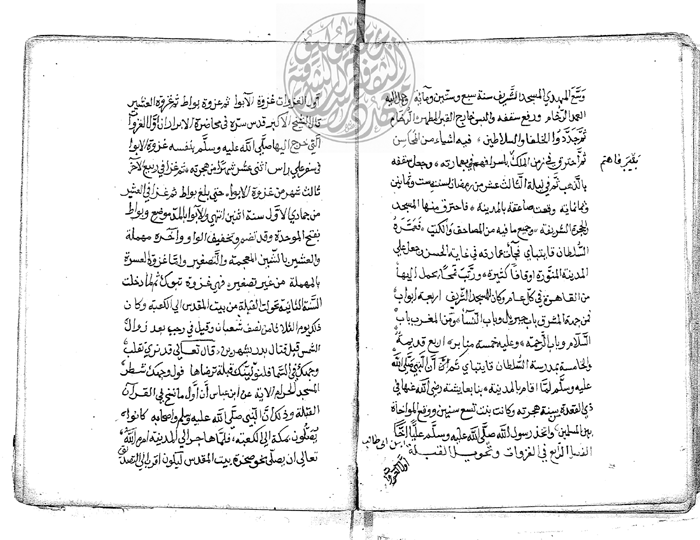 وسّع المهدي المسجد الشريف سنة سبع وستين ومائة
العمد الرخام ورفع سقفه والبس خارج القبر المطهر الرخام
ثم جدد الخلفا والسلاطين فيه اشياء من المحاسن
ثم احترق في زمن الملك وجعل سقفه
بالذهب ثم في ليلة الثالث عشر من رمضان سنة ست وثمانين
وثمانمائة وقعت صاعقة بالمدينة فاحترق منها المسجد
والحجرة الشريفة وجميع ما فيه من المصاحف والكتب فعمره
السلطان قايتباي فجأت عمارته في غاية الحسن ووقف على
المدينة المنورة اوقافا كثيرة ورتب يحمل اليها
من القاهرة في كل عام وكان للمسجد الشريف اربعة ابواب
من جهة المشرق باب جبريل وباب النسا ومن المغرب باب
السلام وباب الرحمة وعليه خمسة منابر اربع قديمة
والخامسة بمدرسة السلطان قايتباي ثم ان النبي صلى الله
عليه وسلم لما اقام بالمدينة بنا بعايشة رضي الله عنها في
ذي القعدة سنة هجرته وكانت بنت تسع سنين ووقع المواخاة
بين المسلمين واتخذ رسول الله صلى الله عليه وسلم عليا اخا
الفصل الرابع في الغزوات وتحويل القبلة
بن ابي طالب
اول الغزوات
اول الغزوات غزوة الابوا ثم غزوة بواط ثم غزوة العشير
قال الشيخ الاكبر قدس سره في محاضرة الابرار اول الغزوات
التي خرج اليها صلى الله عليه وسلم بنفسه غزوة الابوا
في صفر على راس اثنى عشر شهرا من هجرته ثم غزا في ربيع الاخر
ثالث شهر من غزوة الابواء حتى بلغ بواط ثم غزا في العشير
من جمادي الاول سنة اثنين انتهى والابوا بالمد موضع وبواط
بفتح الموحدة وقد تضم وتخفيف الواو واخره مهملة
والعشير بالشين المعجمة والتصغير واما غزوة العسرة
بالمهملة من غير تصغير فهي غزوة تبوك ثم لما دخلت
السنة الثانية حولت القبلة من بيت المقدس الى الكعبة وكان
ذلك يوم الثلاثا من نصف شعبان وقيل في رجب بعد زوال
الشمس قبل قتال بدر بشهرين قال تعالى قد نرى تقلب
وجهك في السماء فلنولينك قبلة ترضاها فول وجهك شطر
المسجد الحرام الاية عن ابن عباس ان اول ما نسخ في القرآن
القبلة وذلك ان النبي صلى الله عليه وسلم واصحابه كانوا
يصلون بمكة الى الكعبة فلما هاجر الى المدينة امره الله
تعالى ان يصلى نحو صخرة بيت المقدس ليكون اقرب الى